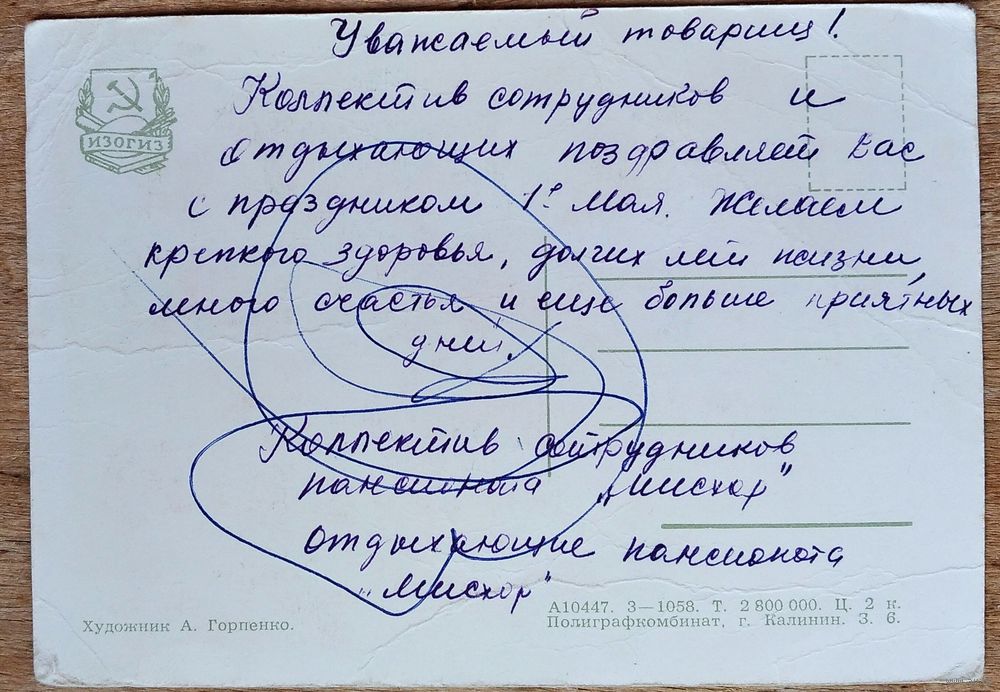 Уважаемый товарищ!
Коллектив сотрудников и
отдыхающих поздравляет Вас
с праздником 1е Мая. Желаем
крепкого здоровья, долгих лет жизни,
много счастья и еще больше приятных
дней.
Коллектив сотрудников
пансионата „Мисхор"
отдыхающие пансионата
„Мисхор"
ИЗОГИЗ
Художник А. Горпенко.
А10447. 3—1058. Т. 2 800 000. Ц. 2 к.
Полиграфкомбинат, г. Калинин. З. 6.